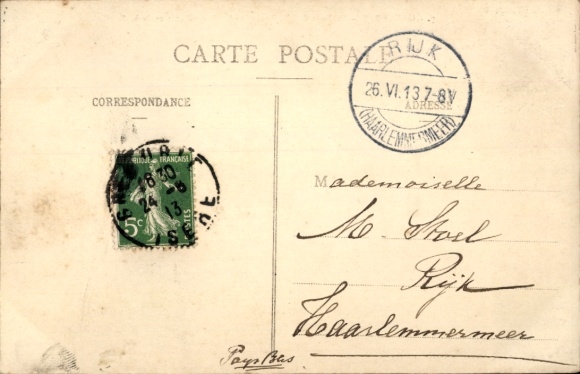 CARTE POSTALE
RIJK
26.VI.13 7-8V
(HAARLEMMERMEER)
CORRESPONDANCE
ADRESSE
FRANÇAISE
24 -6
13
5c POSTES
ISÈRE
Mademoiselle
M. Stoel
Rijk
Haarlemmermeer
Pays Bas